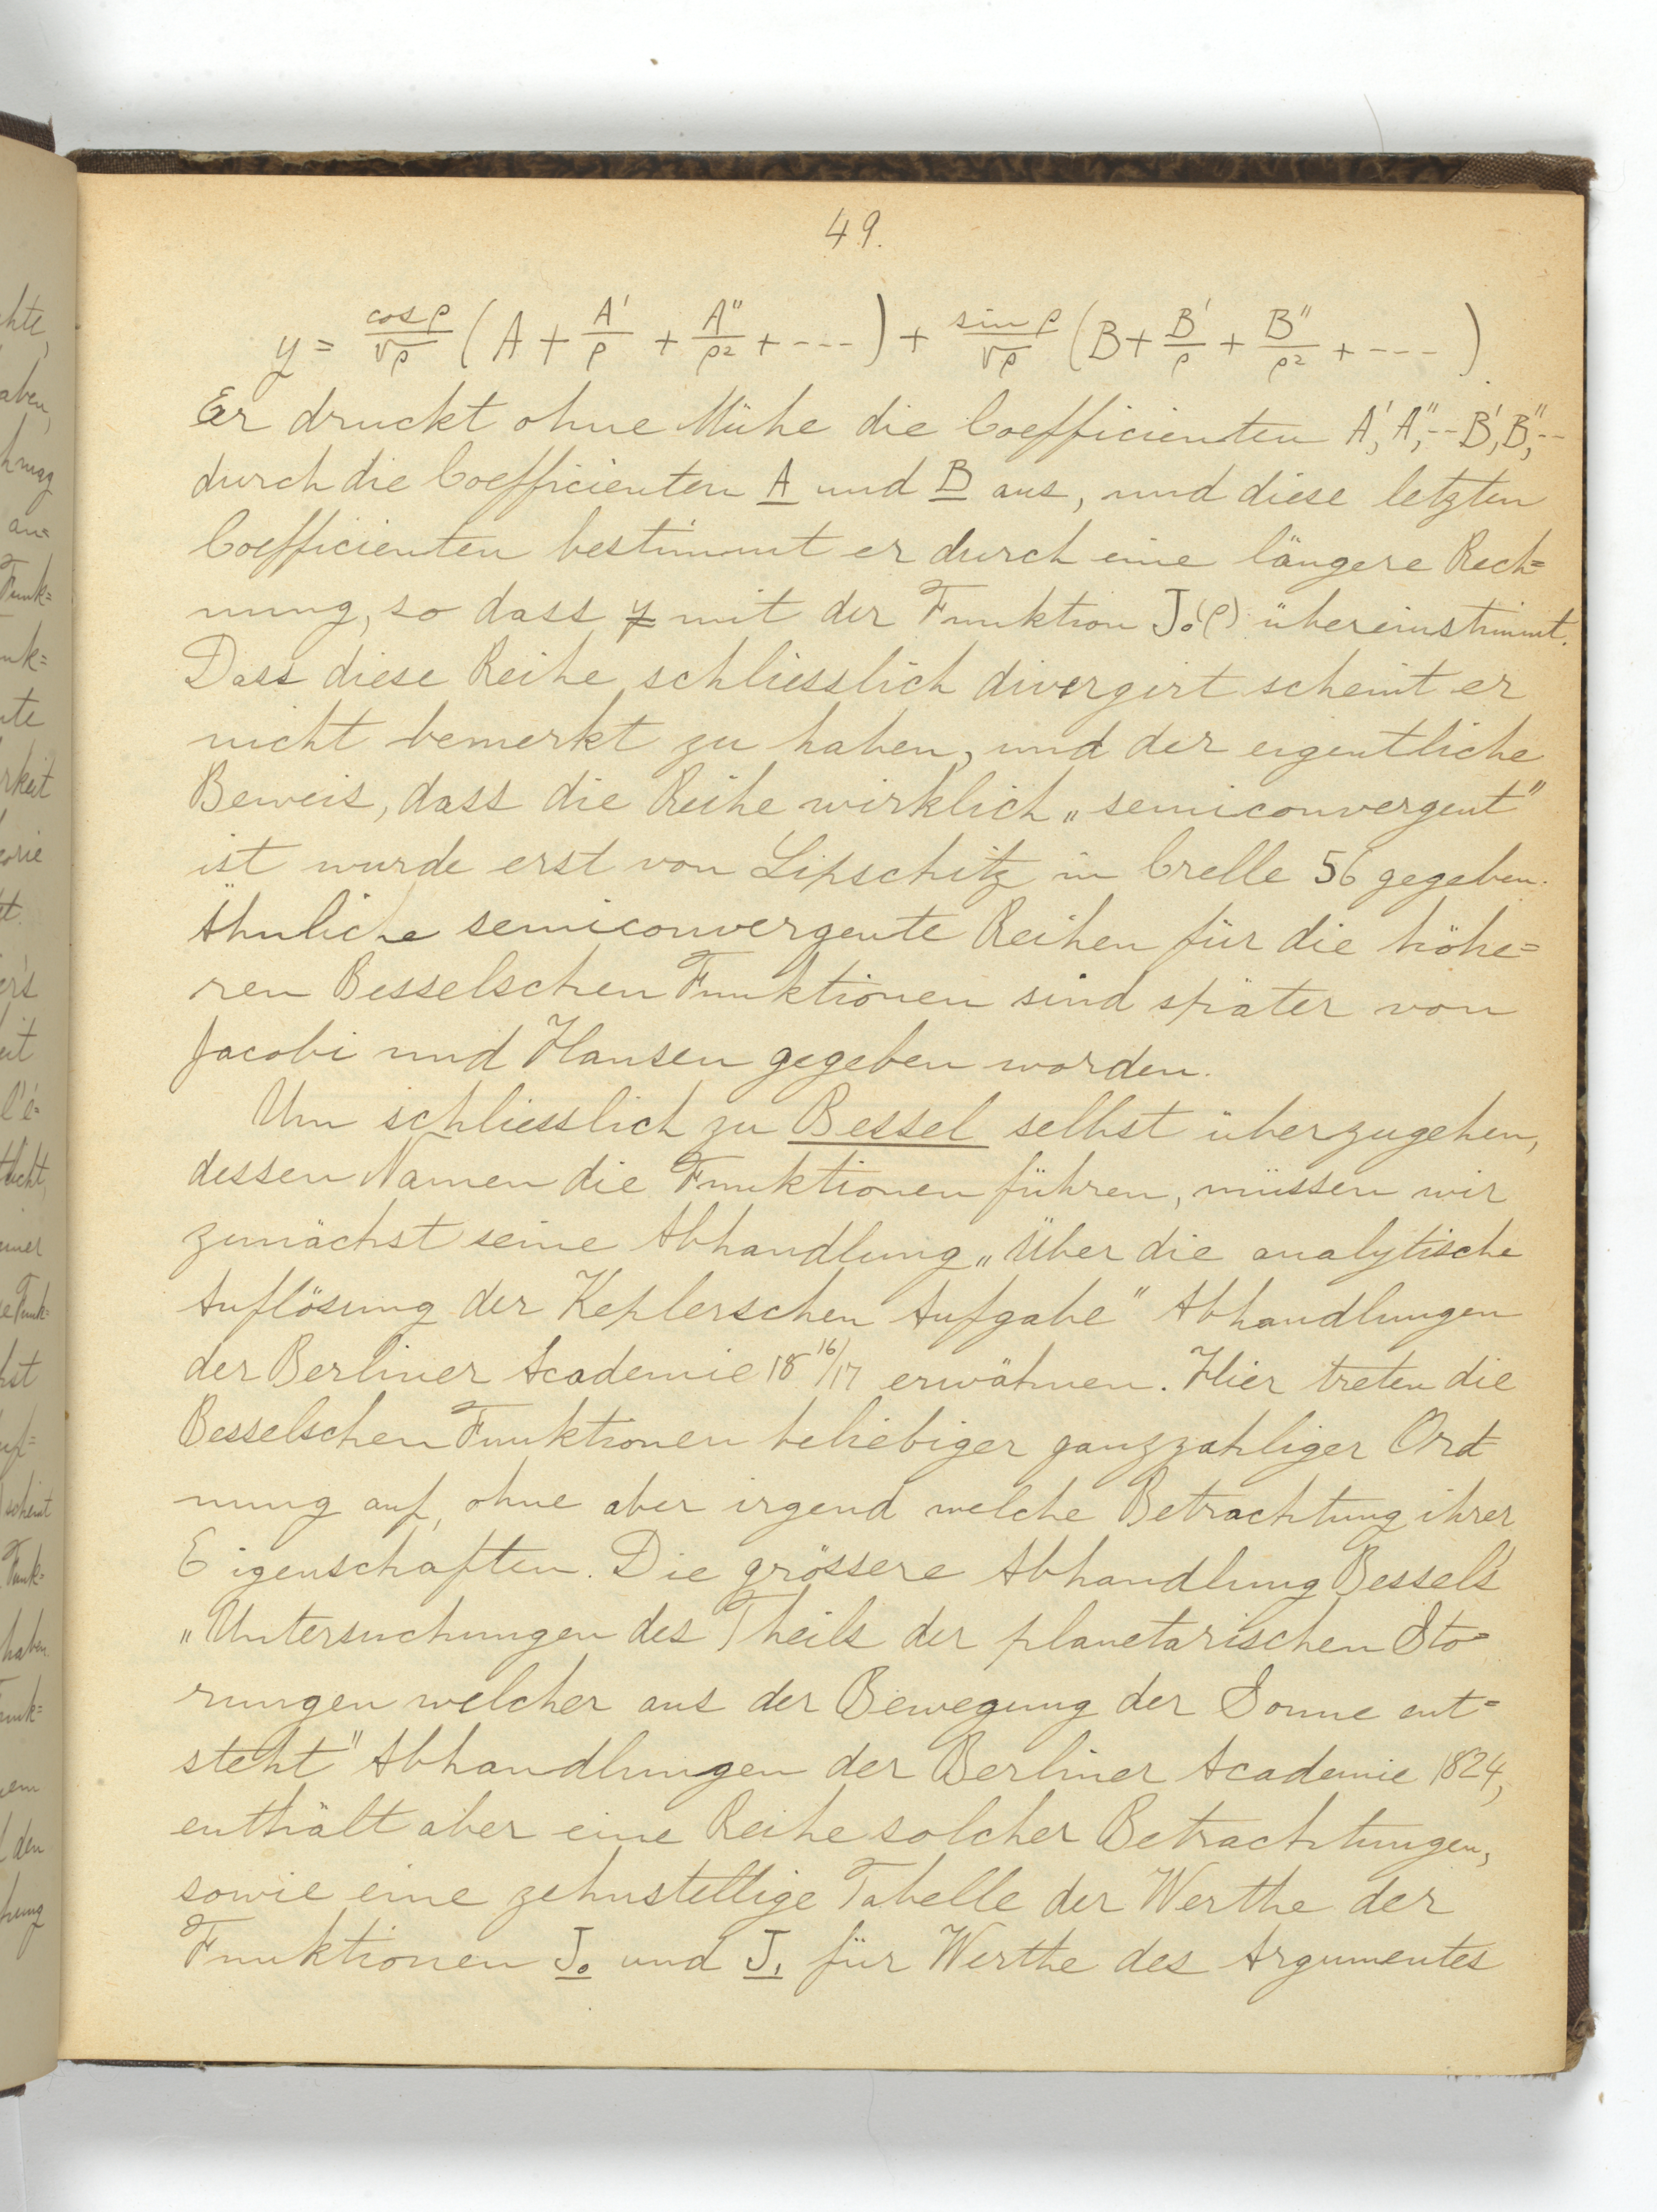 49.
y = cos ρ/√ρ (A + A'/ρ + A''/ρ² + ---) + sin ρ/√ρ (B + B'/ρ + B''/ρ² + ---)
Er druckt ohne Mühe die Coefficienten A', A'', -- B', B'', --
durch die Coefficienten A und B aus, und diese letzten
Coefficienten bestimmt er durch eine längere Rech=
nung, so dass y mit der Funktion J₀(ρ) übereinstimmt.
Dass diese Reihe schliesslich divergirt scheint er
nicht bemerkt zu haben, und der eigentliche
Beweis, dass die Reihe wirklich „semiconvergent"
ist wurde erst von Lipschitz in Crelle 56 gegeben.
Ähnliche semiconvergente Reihen für die höhe=
ren Besselschen Funktionen sind später von
Jacobi und Hansen gegeben worden.
Um schliesslich zu Bessel selbst überzugehen,
dessen Namen die Funktionen führen, müssen wir
zunächst seine Abhandlung „Über die analytische
Auflösung der Keplerschen Aufgabe" Abhandlungen
der Berliner Academie 18 16/17 erwähnen. Hier treten die
Besselschen Funktionen beliebiger ganzzahliger Ord=
nung auf, ohne aber irgend welche Betrachtung ihrer
Eigenschaften. Die grössere Abhandlung Bessel's
„Untersuchungen des Theils der planetarischen Stö=
rungen welcher aus der Bewegung der Sonne ent=
steht" Abhandlungen der Berliner Academie 1824,
enthält aber eine Reihe solcher Betrachtungen,
sowie eine zehnstellige Tabelle der Werthe der
Funktionen J₀ und J₁ für Werthe des Argumentes